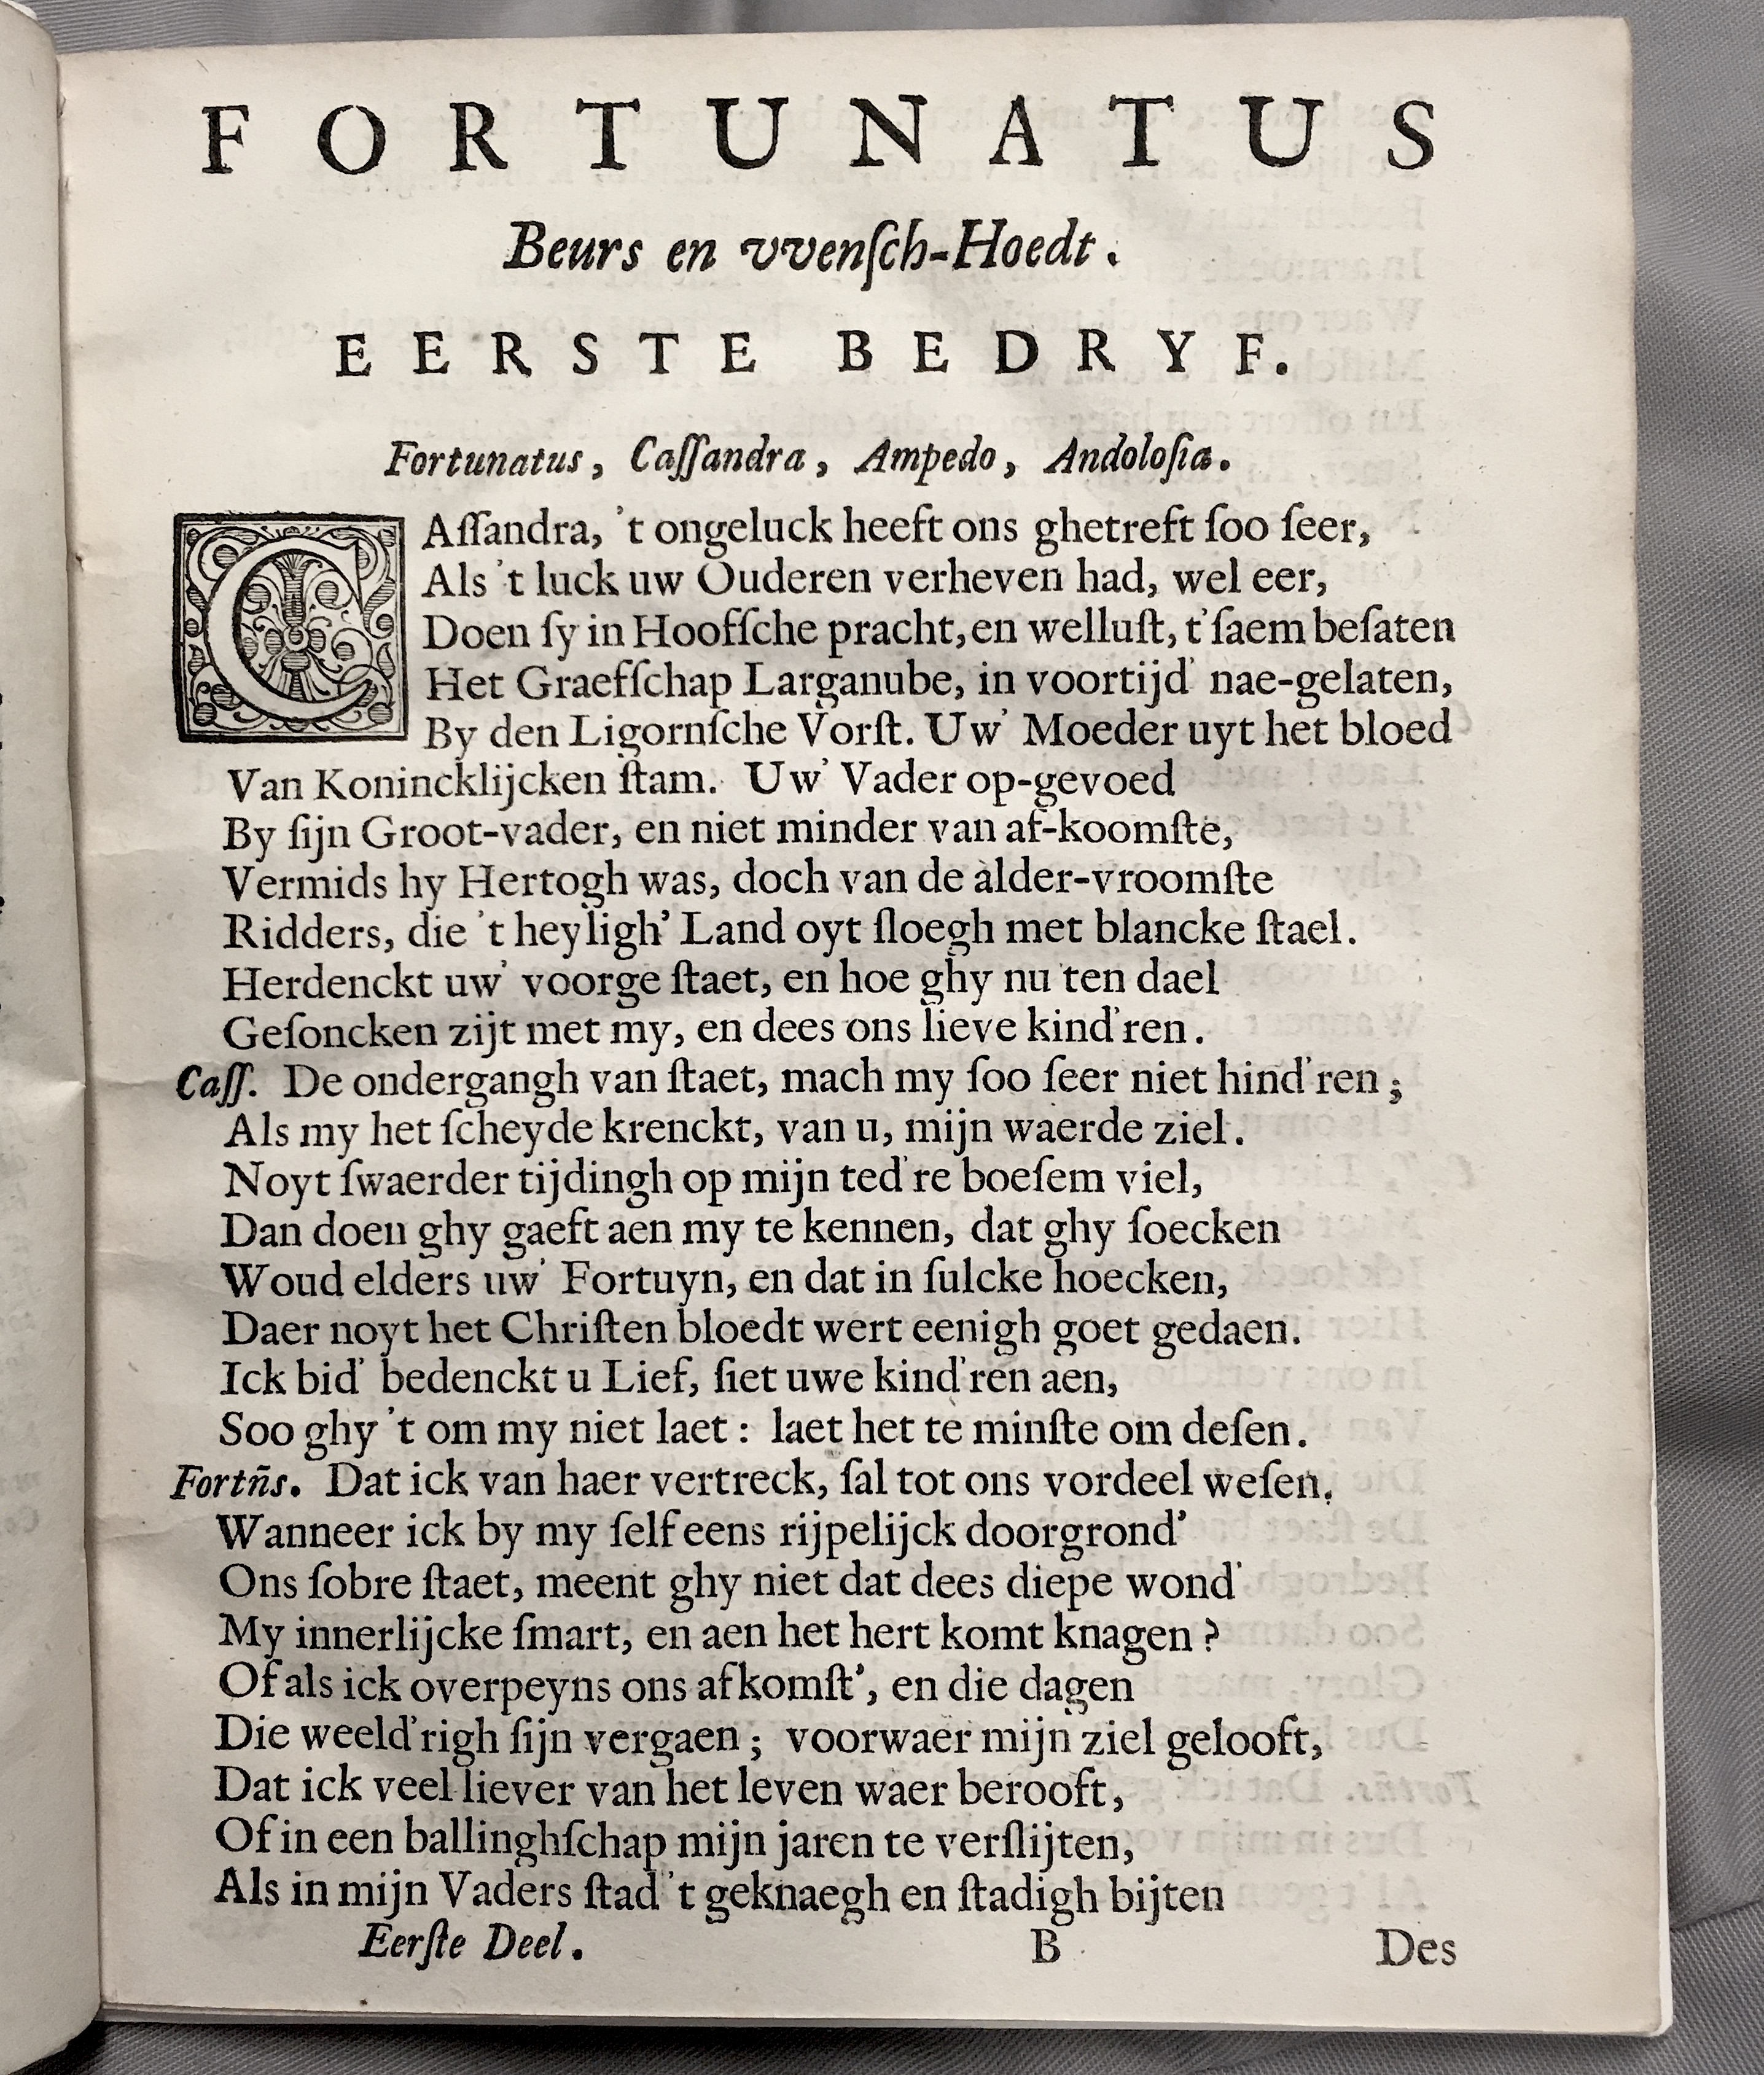 FORTUNATUS
Beurs en vvenſch-Hoedt.
EERSTE BEDRYF.
Fortunatus, Caſſandra, Ampedo, Andoloſia.
CAſſandra, 't ongeluck heeft ons ghetreft ſoo ſeer,
Als 't luck uw Ouderen verheven had, wel eer,
Doen ſy in Hoofſche pracht, en welluſt, t'ſaem beſaten
Het Graefſchap Larganube, in voortijd' nae-gelaten,
By den Ligornſche Vorſt. Uw' Moeder uyt het bloed
Van Konincklijcken ſtam. Uw' Vader op-gevoed
By ſijn Groot-vader, en niet minder van af-koomſte,
Vermids hy Hertogh was, doch van de alder-vroomſte
Ridders, die 't heyligh' Land oyt ſloegh met blancke ſtael.
Herdenckt uw' voorge ſtaet, en hoe ghy nu ten dael
Geſoncken zijt met my, en dees ons lieve kind'ren.
Caſſ. De ondergangh van ſtaet, mach my ſoo ſeer niet hind'ren;
Als my het ſcheyde krenckt, van u, mijn waerde ziel.
Noyt ſwaerder tijdingh op mijn ted're boeſem viel,
Dan doen ghy gaeft aen my te kennen, dat ghy ſoecken
Woud elders uw' Fortuyn, en dat in ſulcke hoecken,
Daer noyt het Chriſten bloedt wert eenigh goet gedaen.
Ick bid' bedenckt u Lief, ſiet uwe kind'ren aen,
Soo ghy 't om my niet laet: laet het te minſte om deſen.
Fortñs. Dat ick van haer vertreck, ſal tot ons vordeel weſen.
Wanneer ick by my ſelf eens rijpelijck doorgrond'
Ons ſobre ſtaet, meent ghy niet dat dees diepe wond'
My innerlijcke ſmart, en aen het hert komt knagen?
Of als ick overpeyns ons afkomſt', en die dagen
Die weeld'righ ſijn vergaen; voorwaer mijn ziel gelooft,
Dat ick veel liever van het leven waer berooft,
Of in een ballinghſchap mijn jaren te verſlijten,
Als in mijn Vaders ſtad 't geknaegh en ſtadigh bijten
Eerſte Deel. B Des